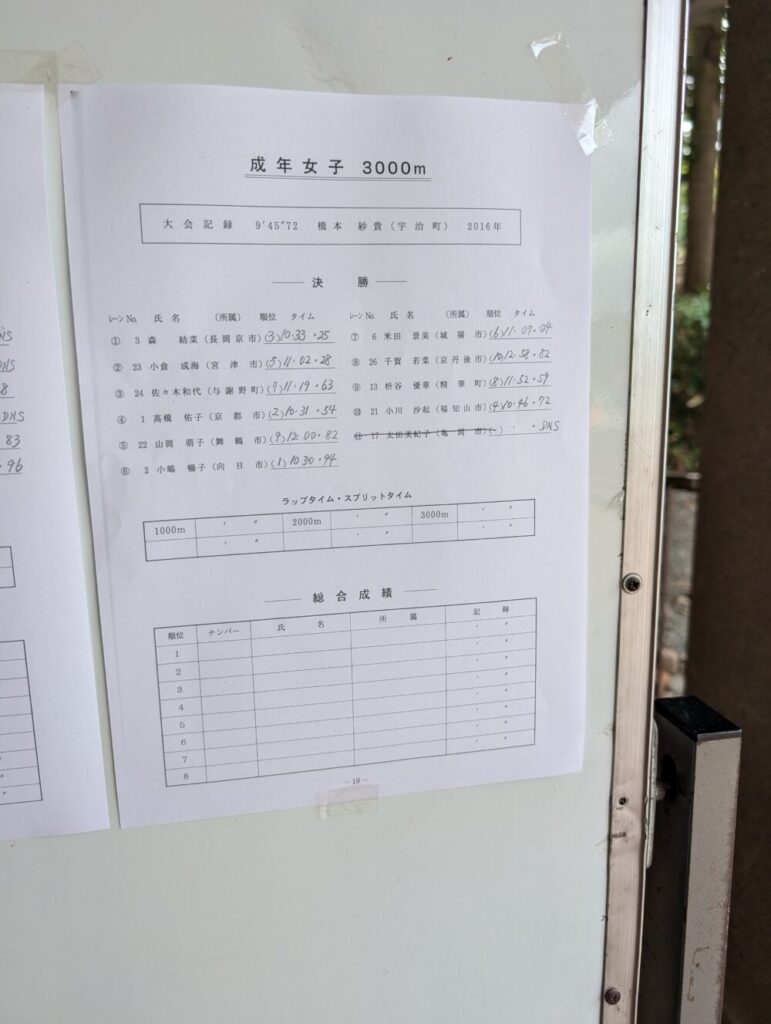 成年女子 3000m
大会記録 9′45″72 橋本 紗貴(宇治町) 2016年
決勝
レーン No. 氏名 (所属) 順位 タイム
① 3 森 結菜(長岡京市)(3)10.33.25
② 23 小倉 成海(宮津市)(5)11.02.28
③ 24 佐々木和代(与謝野町)(7)11.19.63
④ 1 高橋 佑子(京都市)(2)10.31.54
⑤ 22 山岡 萌子(舞鶴市)(9)12.00.82
⑥ 2 小嶋 暢子(向日市)(1)10.30.94
レーン No. 氏名 (所属) 順位 タイム
⑦ 6 米田 景美(城陽市)(6)11.07.04
⑧ 26 千賀 若菜(京丹後市)(10)12.58.82
⑨ 13 桝谷 優華(精華町)(8)11.52.59
⑩ 21 小川 沙起(福知山市)(4)10.46.72
⑪ 17 太田美紀子(亀岡市)( ) . . DNS
ラップタイム・スプリットタイム
1000m ′ ″ 2000m ′ ″ 3000m ′ ″
′ ″ ′ ″ ′ ″
総合成績
順位 ナンバー 氏名 所属 記録
1 ′ ″
2 ′ ″
3 ′ ″
4 ′ ″
5 ′ ″
6 ′ ″
7 ′ ″
8 ′ ″
— 19 —
DNS
8
DNS
83
.96